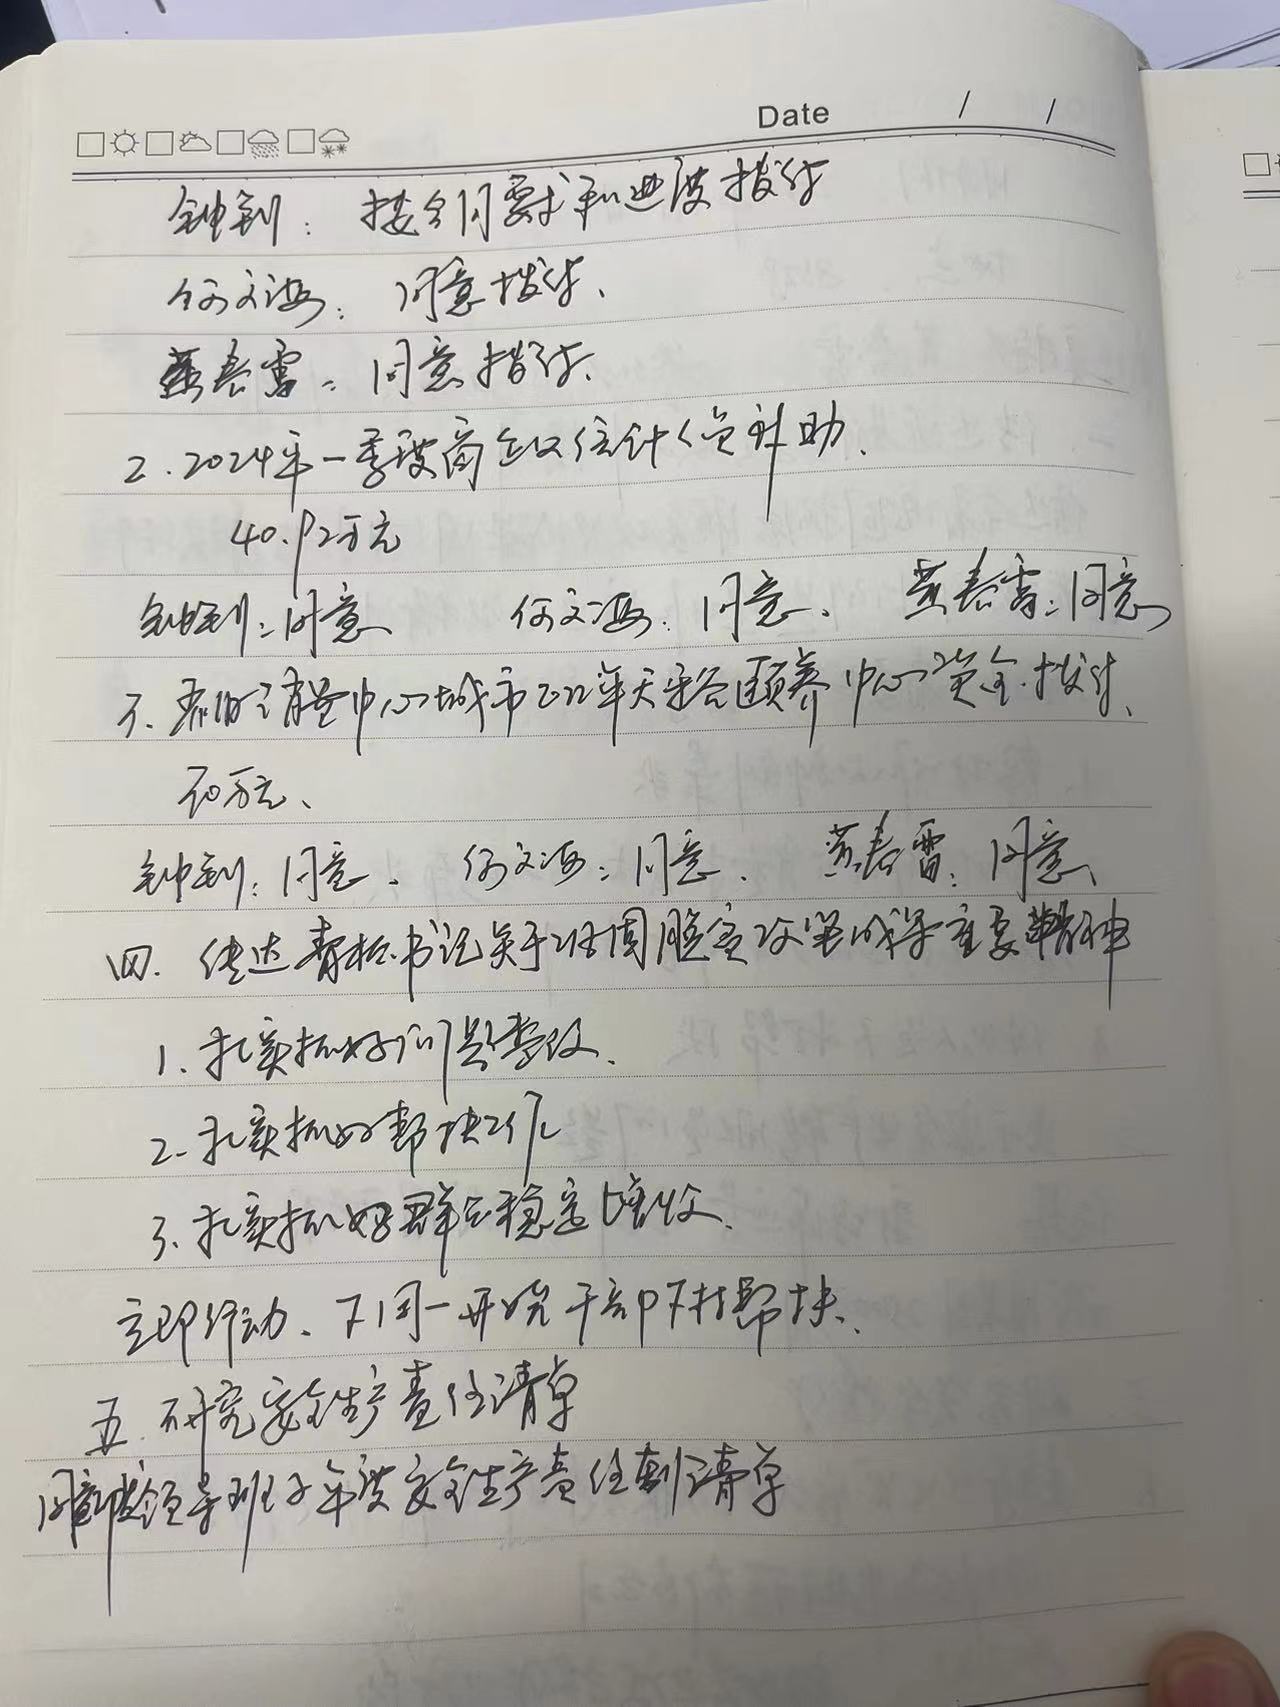 Date / /
钟钊：按合同要求和进度拨付
何文海：同意拨付、
黄春雷：同意拨付、
2.2024年一季度商会统计人员补助、
40.92万元
钟钊：同意 何文海：同意、 黄春雷：同意
3. 中心城市2022年天乐谷颐养中心资金拨付、
50万元、
钟钊：同意、 何文海：同意、 黄春雷：同意、
四. 传达青松书记关于巩固脱贫攻坚成果重要精神
1.扎实抓好问题整改、
2.扎实抓好帮扶工作
3.扎实抓好群众稳定增收、
立即行动、下周一开始干部下村帮扶、
五.研究安全生产责任清单
同意 领导班子年度安全生产责任制清单